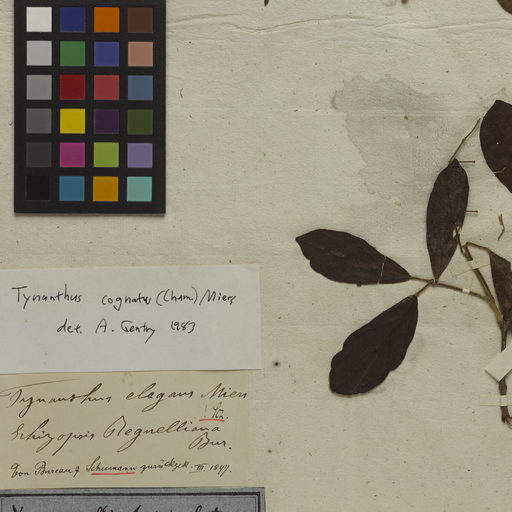 Tynanthus cognatus (Cham.) Miers
det. A. Gentry 1983
Tynanthus elegans Miers
Schizopsis Regnelliana
Bur.
Von Bureau & Schumann zurückgek. III. 1897.